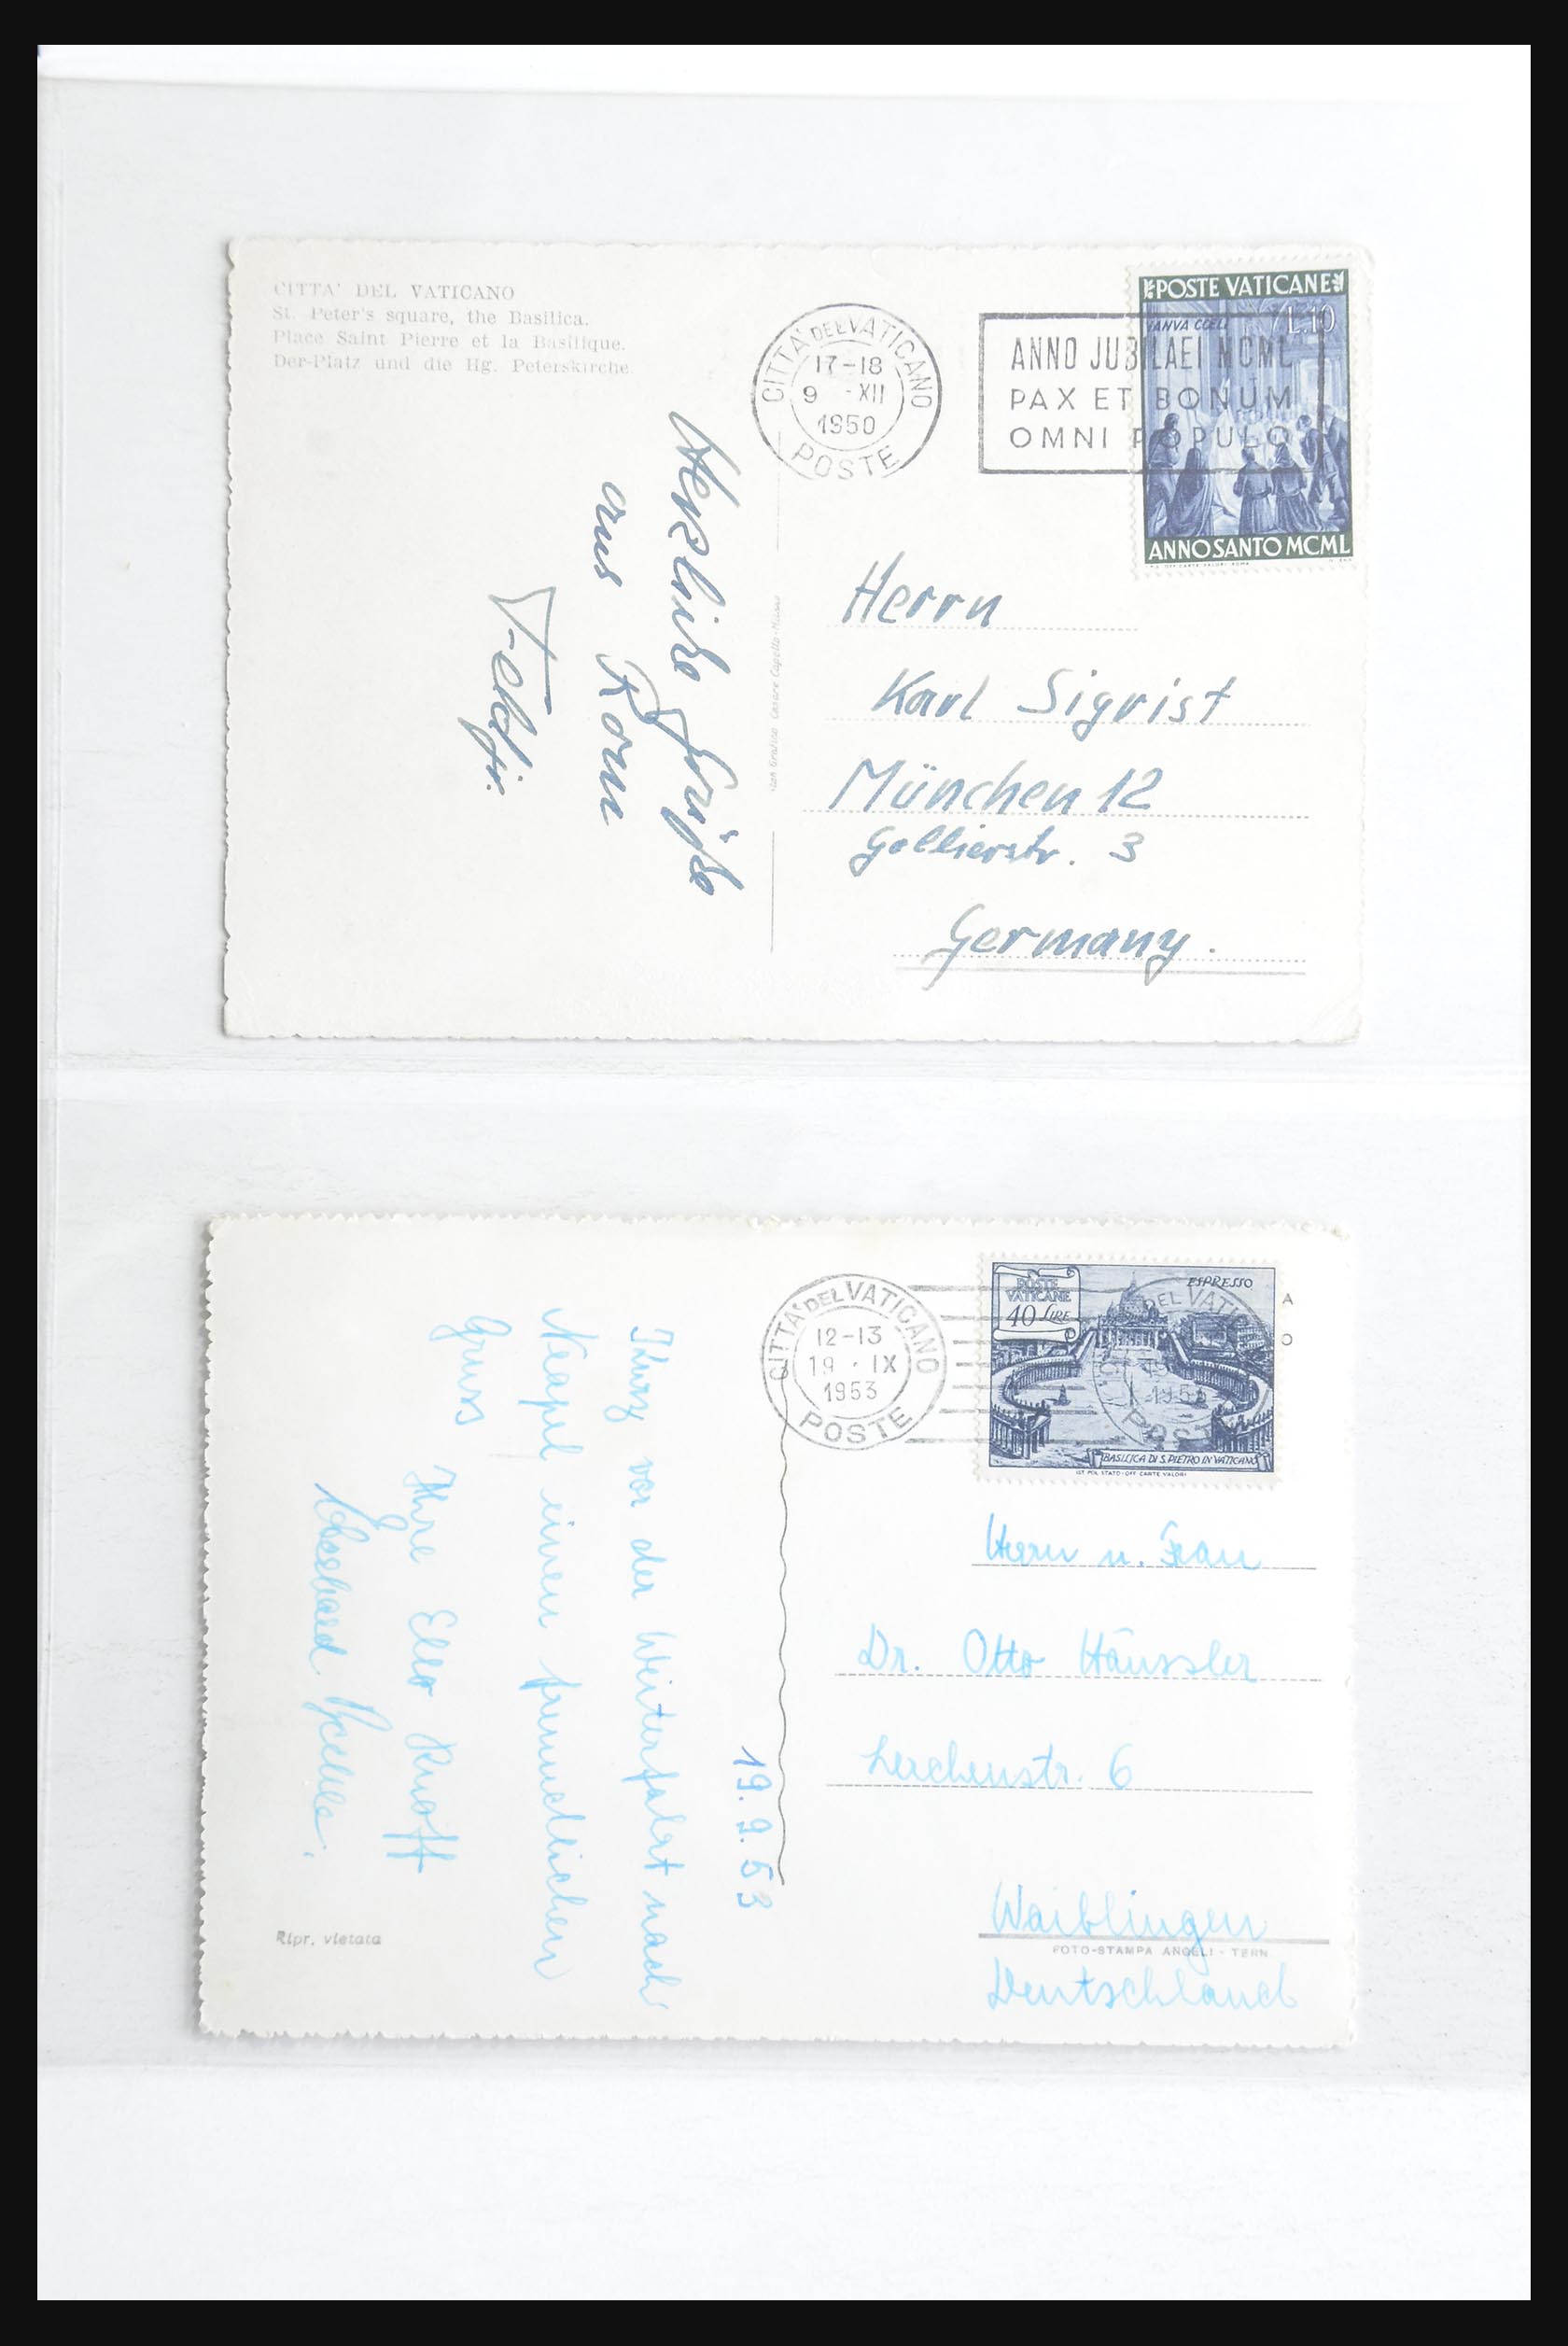 CITTA' DEL VATICANO
St. Peter's square, the Basilica.
Place Saint Pierre et la Basilique.
Der-Platz und die Hg. Peterskirche.
CITTA' DEL VATICANO
17-18
9 -XII
1950
POSTE
ANNO JUBILAEI MCML
PAX ET BONUM
OMNI POPULO
POSTE VATICANE
IANVA COELI L.10
ANNO SANTO MCML
Herzliche Grüße
aus Rom
Herrn
Karl Sigrist
München 12
Gollierstr. 3
Germany.
CITTA' DEL VATICANO
12-13
19 · IX
1953
POSTE
POSTE
VATICANE
40 LIRE
ESPRESSO
BASILICA DI S. PIETRO IN VATICANO
IST. POL. STATO-OFF. CARTE VALORI
A
O
19.9.53
Kurz vor der Weiterfahrt nach
Neapel einen freundlichen
Gruss
Ihre Knoff
Herrn u. Frau
Dr. Otto Häussler
Lerchenstr. 6
Waiblingen
FOTO-STAMPA ANGELI - TERN
Deutschland
Ripr. vietata